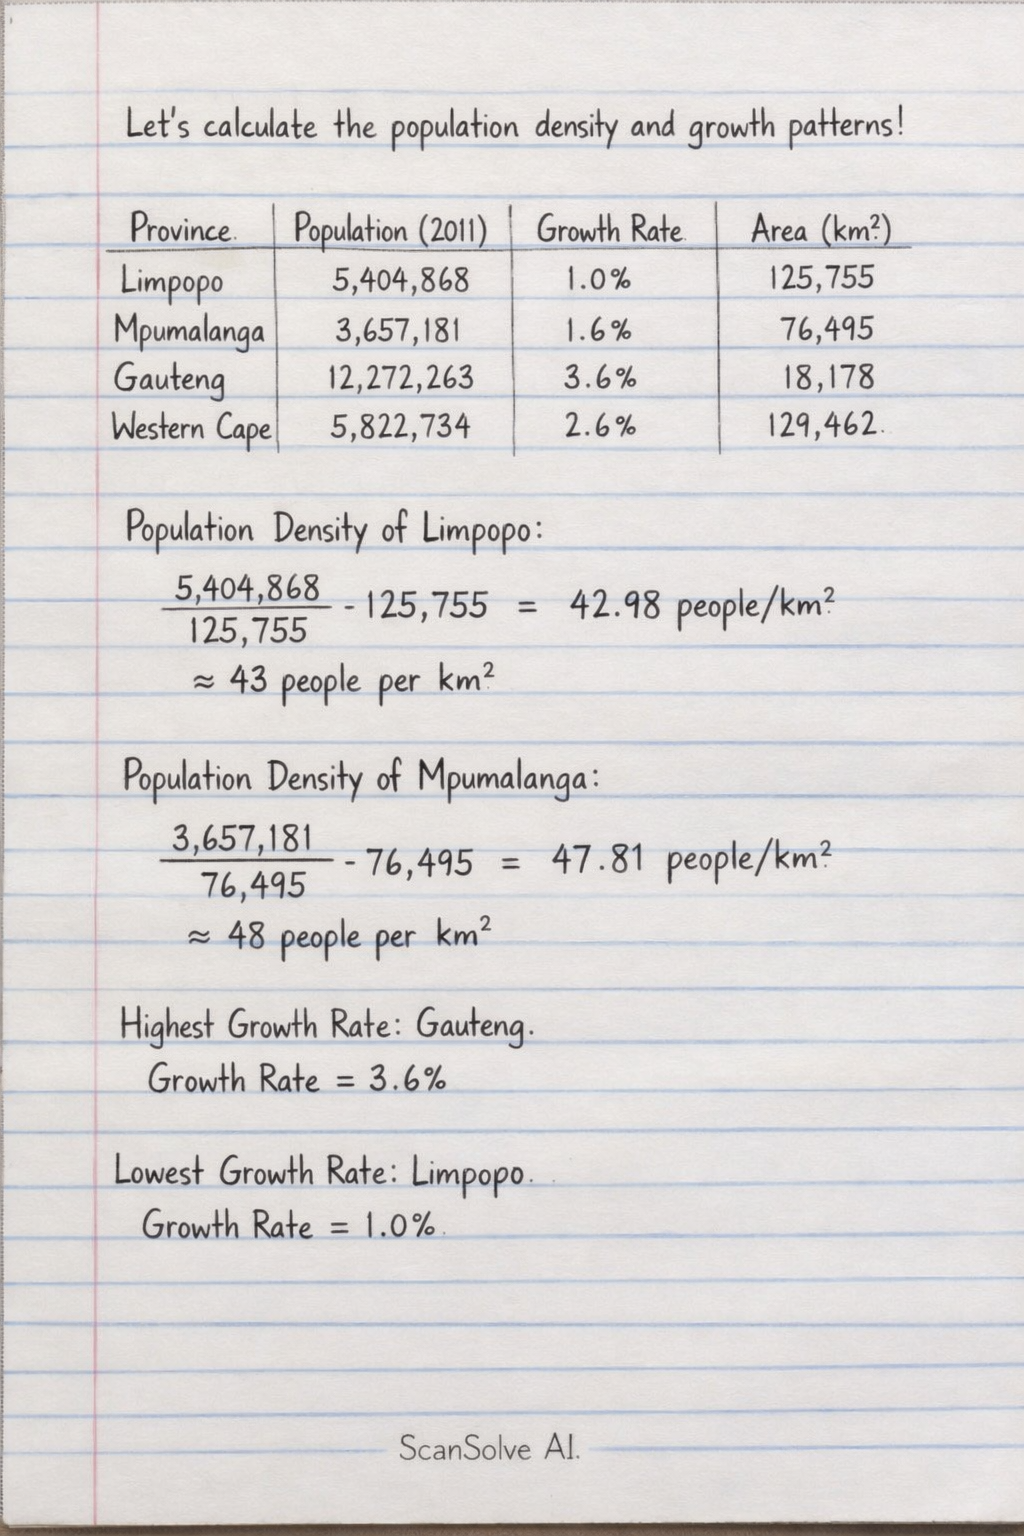 Let's calculate the population density and growth patterns!
Province. Population (2011) Growth Rate Area (km²)
Limpopo 5,404,868 1.0% 125,755
Mpumalanga 3,657,181 1.6% 76,495
Gauteng 12,272,263 3.6% 18,178
Western Cape 5,822,734 2.6% 129,462.
Population Density of Limpopo:
5,404,868
125,755
- 125,755 = 42.98 people/km²
≈ 43 people per km²
Population Density of Mpumalanga:
3,657,181
76,495
- 76,495 = 47.81 people/km²
≈ 48 people per km²
Highest Growth Rate: Gauteng.
Growth Rate = 3.6%
Lowest Growth Rate: Limpopo.
Growth Rate = 1.0%.
ScanSolve AI.